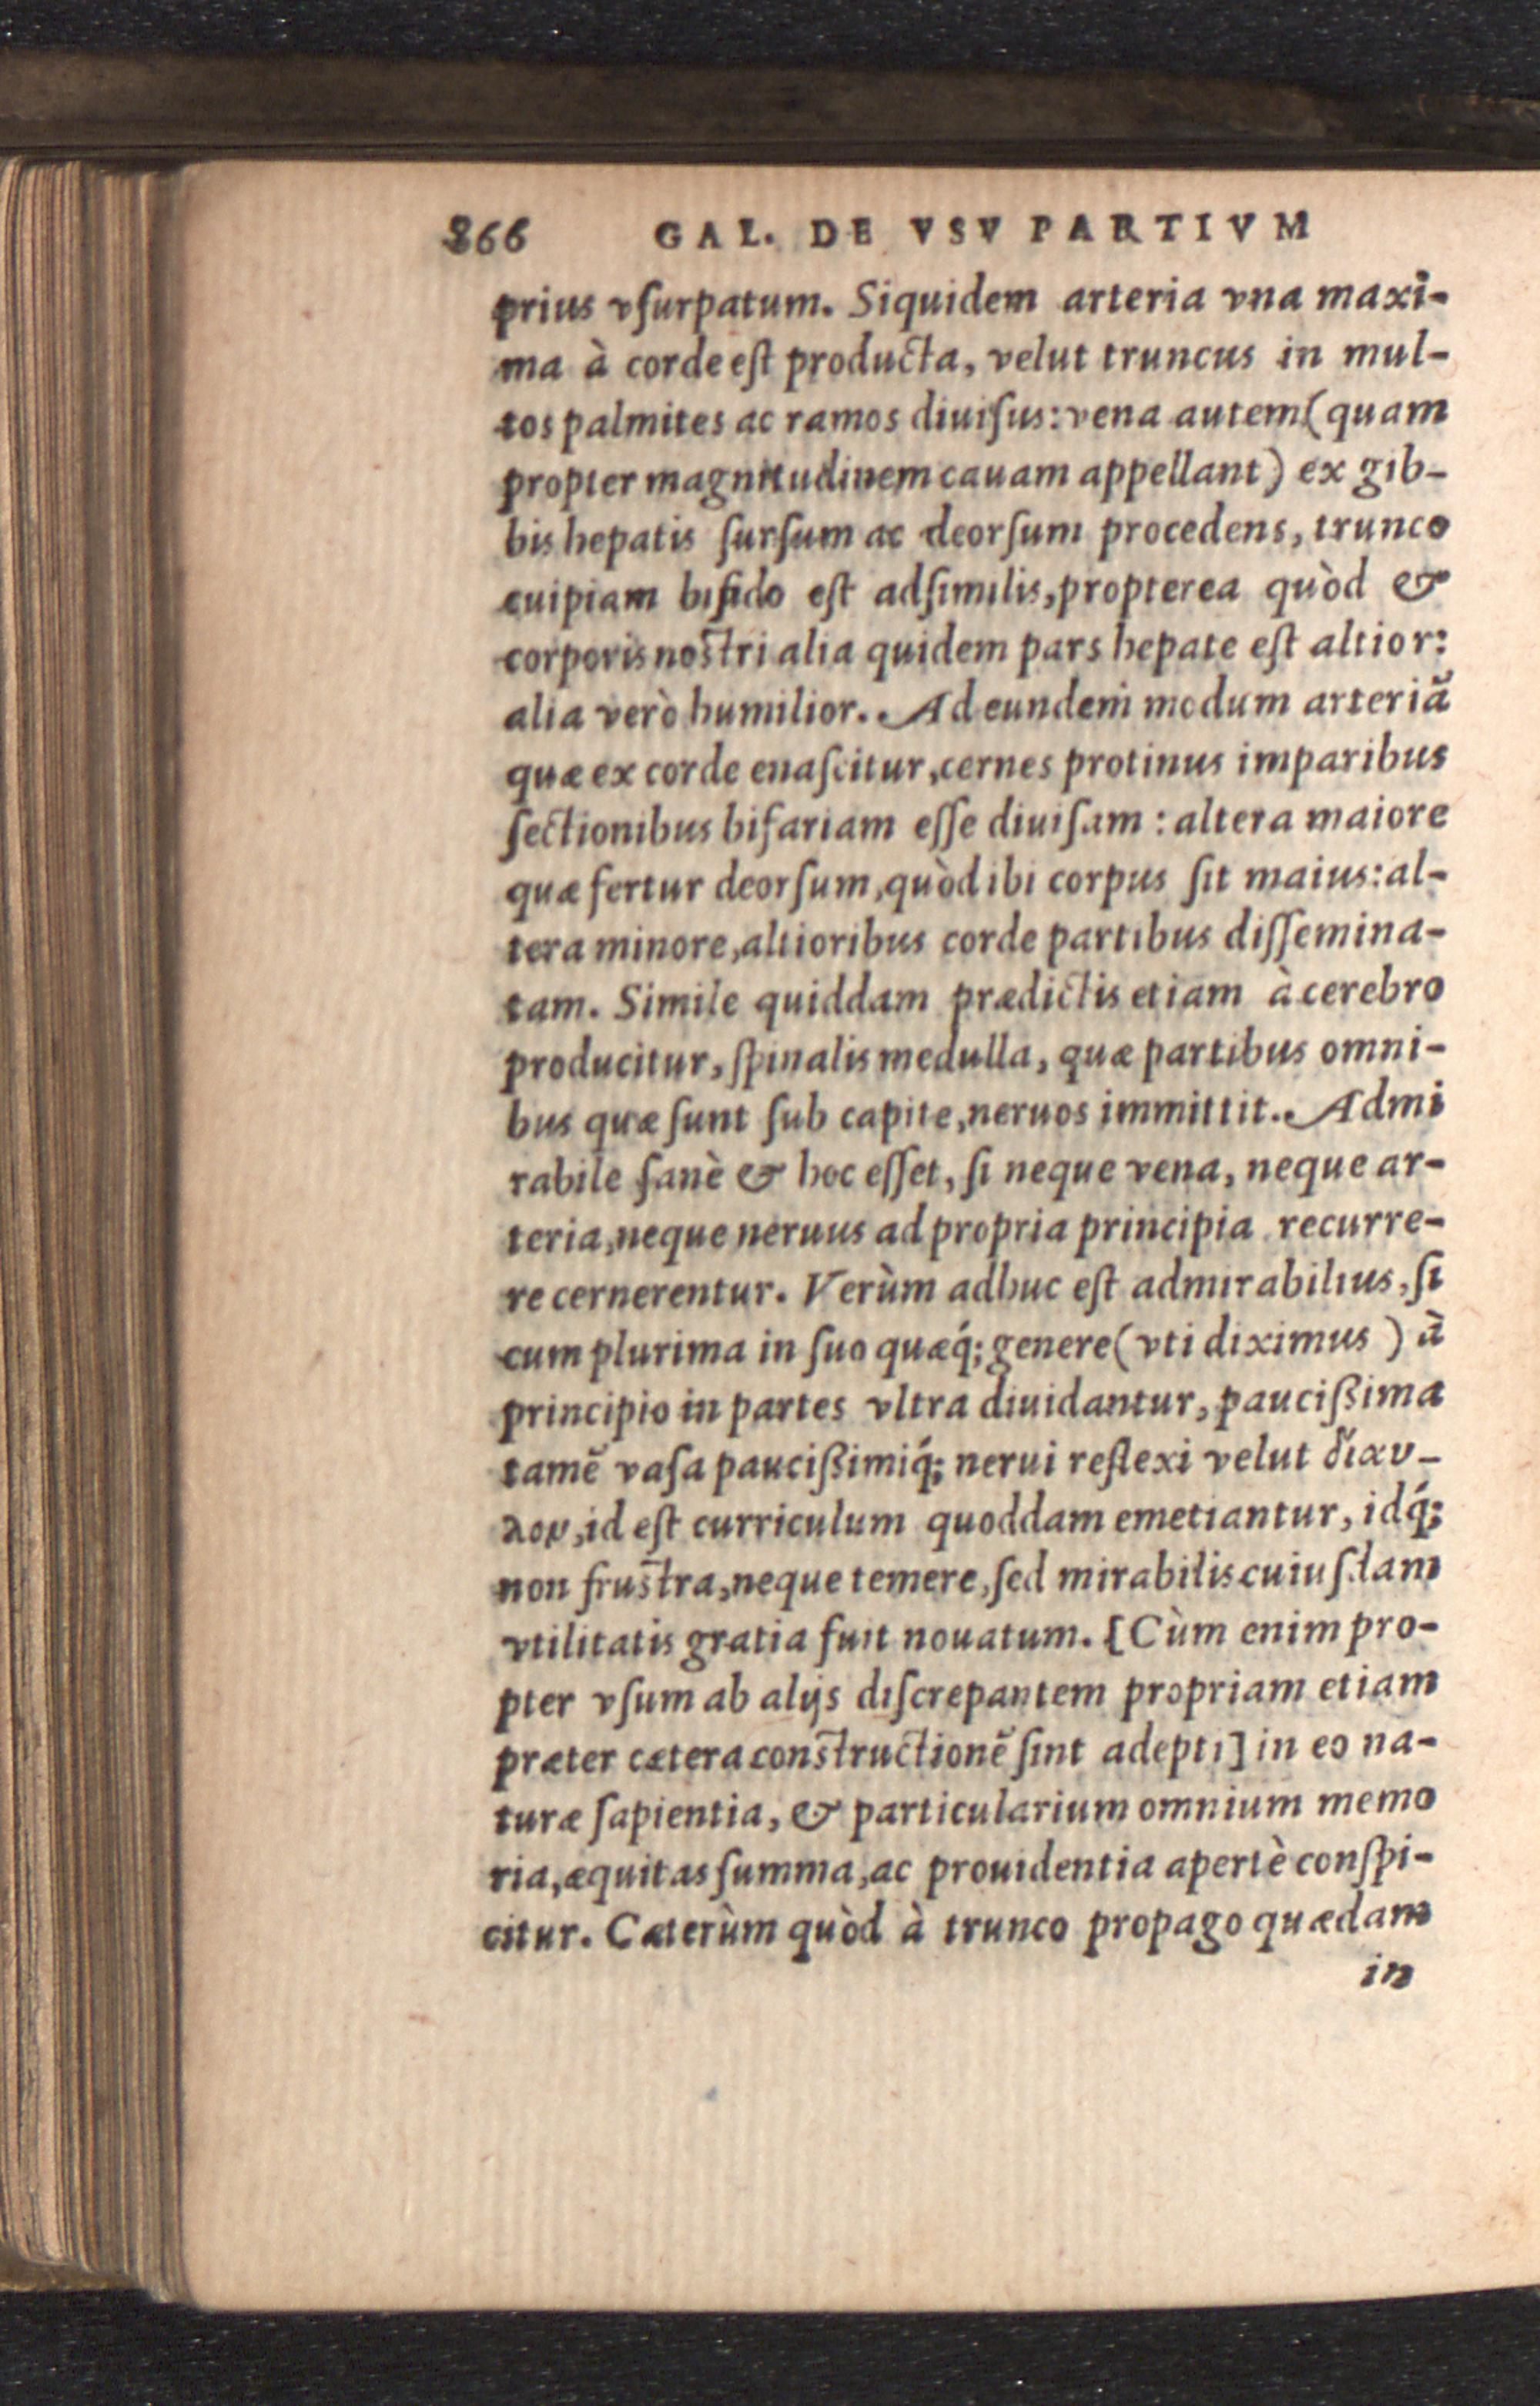 866 GAL. DE VSV PARTIVM
prius vſurpatum. Siquidem arteria vna maxi-
ma à corde eſt producta, velut truncus in mul-
tos palmites ac ramos diuiſus: vena autem (quam
propter magnitudinem cauam appellant) ex gib-
bis hepatis ſurſum ac deorſum procedens, trunco
cuipiam bifido eſt adſimilis, propterea quòd &
corporis noſtri alia quidem pars hepate eſt altior:
alia verò humilior. Ad eundem modum arteriã
quæ ex corde enaſcitur, cernes protinus imparibus
ſectionibus bifariam eſſe diuiſam: altera maiore
quæ fertur deorſum, quòd ibi corpus ſit maius: al-
tera minore, altioribus corde partibus diſſemina-
tam. Simile quiddam prædictis etiam à cerebro
producitur, ſpinalis medulla, quæ partibus omni-
bus quæ ſunt ſub capite, neruos immittit. Admi
rabile ſanè & hoc eſſet, ſi neque vena, neque ar-
teria, neque neruus ad propria principia recurre-
re cernerentur. Verùm adhuc eſt admirabilius, ſi
cum plurima in ſuo quæq́; genere (vti diximus) à
principio in partes vltra diuidantur, pauciſſima
tamẽ vaſa pauciſſimiq́; nerui reflexi velut δίαυ-
λον, id eſt curriculum quoddam emetiantur, idq́;
non fruſtra, neque temere, ſed mirabilis cuiuſdam
vtilitatis gratia fuit nouatum. [Cùm enim pro-
pter vſum ab alijs diſcrepantem propriam etiam
præter cætera conſtructionẽ ſint adepti] in eo na-
turæ ſapientia, & particularium omnium memo
ria, æquitas ſumma, ac prouidentia apertè conſpi-
citur. Cæterùm quòd à trunco propago quædam
in